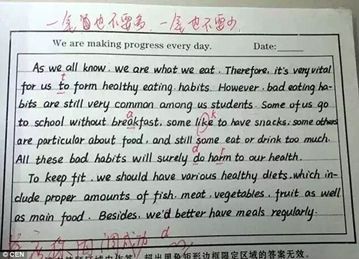 一笔也不要多, 一笔也不要少
We are making progress every day. Date:
As we all know, we are what we eat. Therefore, it's very vital
for us to form healthy eating habits. However, bad eating ha-
bits are still very common among us students. Some of us go
to school without breakfast, some like to have snacks, some others
are particular about food, and still some eat or drink too much.
All these bad habits will surely do harm to our health.
To keep fit, we should have various healthy diets, which in-
clude proper amounts of fish, meat, vegetables, fruit as well
as main food. Besides, we'd better have meals regularly.
超出黑色矩形边框限定区域的答案无效
© CEN